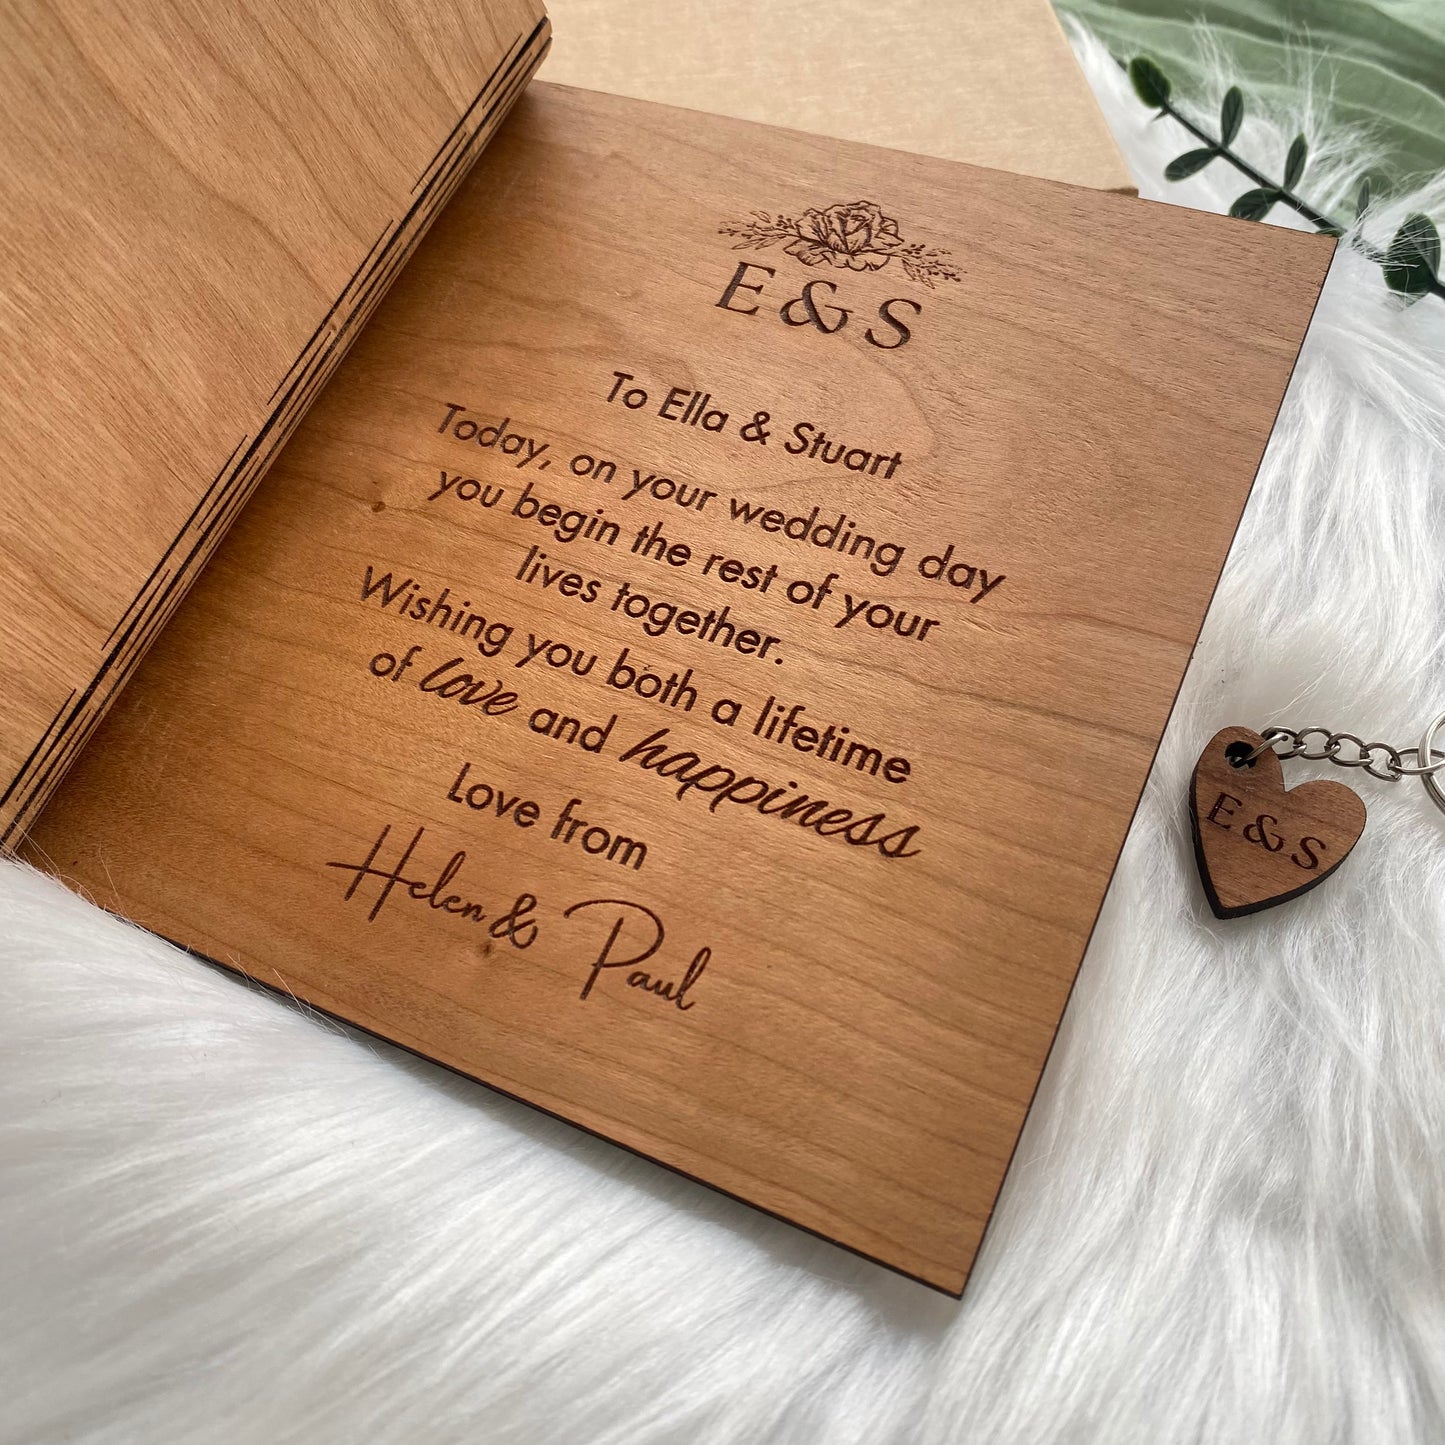 E & S
To Ella & Stuart
Today, on your wedding day
you begin the rest of your
lives together.
Wishing you both a lifetime
of love and happiness
Love from
Helen & Paul
E & S